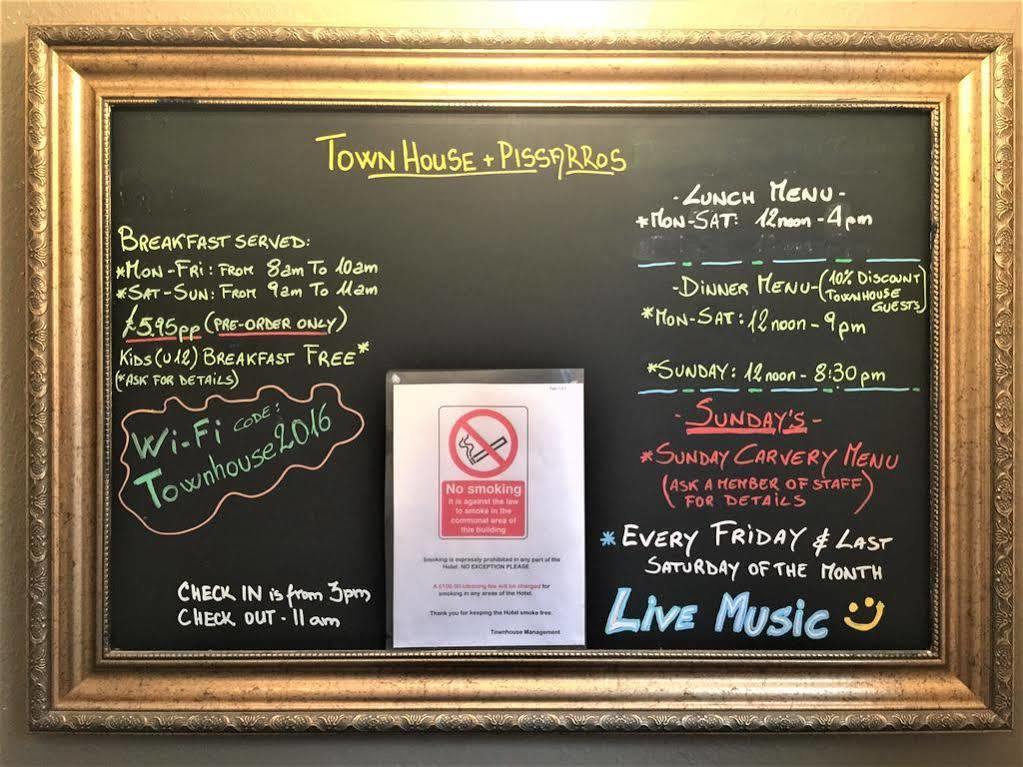 TOWN HOUSE + PISSARROS
BREAKFAST SERVED:
*MON-FRI: FROM 8am To 10am
*SAT-SUN: FROM 9am To 11am
£5.95pp (PRE-ORDER ONLY)
KIDS (U12) BREAKFAST FREE*
(*ASK FOR DETAILS)
Wi-Fi CODE:
Townhouse2016
CHECK IN is from 3pm
CHECK OUT - 11am
No smoking
It is against the law
to smoke in the
communal area of
this building
Smoking is expressly prohibited in any part of the
Hotel. NO EXCEPTION PLEASE
cleaning fee will be charged for
smoking in any areas of the Hotel.
Thank you for keeping the Hotel smoke free.
Townhouse Management
- LUNCH MENU -
*MON-SAT: 12noon - 4pm
- DINNER MENU - (10% DISCOUNT
TOWNHOUSE
GUESTS)
*MON-SAT: 12noon - 9pm
*SUNDAY: 12noon - 8:30pm
- SUNDAY'S -
*SUNDAY CARVERY MENU
(ASK A MEMBER OF STAFF
FOR DETAILS)
*EVERY FRIDAY & LAST
SATURDAY OF THE MONTH
LIVE MUSIC